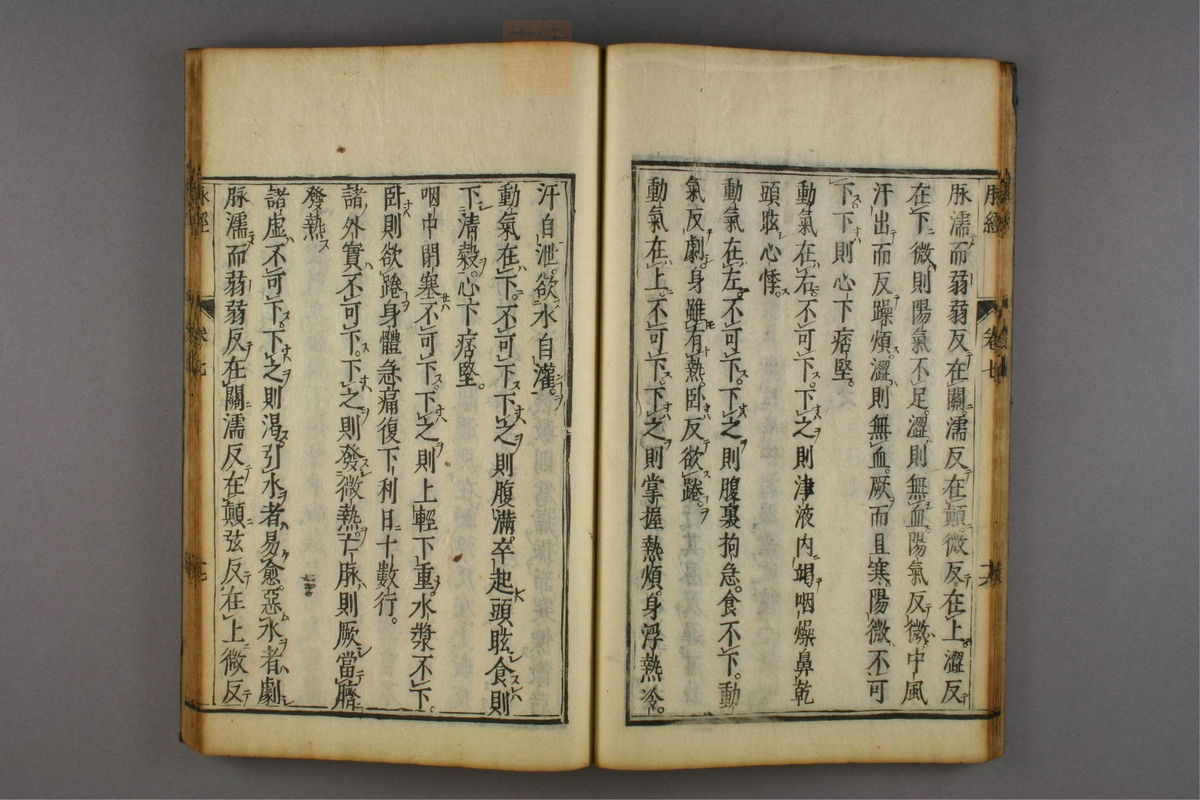 脉濡而弱弱反在關濡反在顛微反在上澀反
在下微則陽氣不足澀則無血陽氣反微中風
汗出而反躁煩澀則無血厥而且寒陽微不可
下下則心下痞堅
動氣在右不可下下之則津液內竭咽燥鼻乾
頭眩心悸
動氣在左不可下下之則腹裏拘急食不下動
氣反劇身雖有熱臥反欲踡
動氣在上不可下下之則掌握熱煩身浮熱冷
汗自泄欲水自灌
動氣在下不可下下之則腹滿卒起頭眩食則
下清穀心下痞堅
咽中閉塞不可下下之則上輕下重水漿不下
臥則欲踡身體急痛復下利日十數行
諸外實不可下下之則發微熱亡脉則厥當臍
發熱
諸虛不可下下之則渴引水者易愈惡水者劇
脉濡而弱弱反在關濡反在顛弦反在上微反
脉經
卷七
脉經